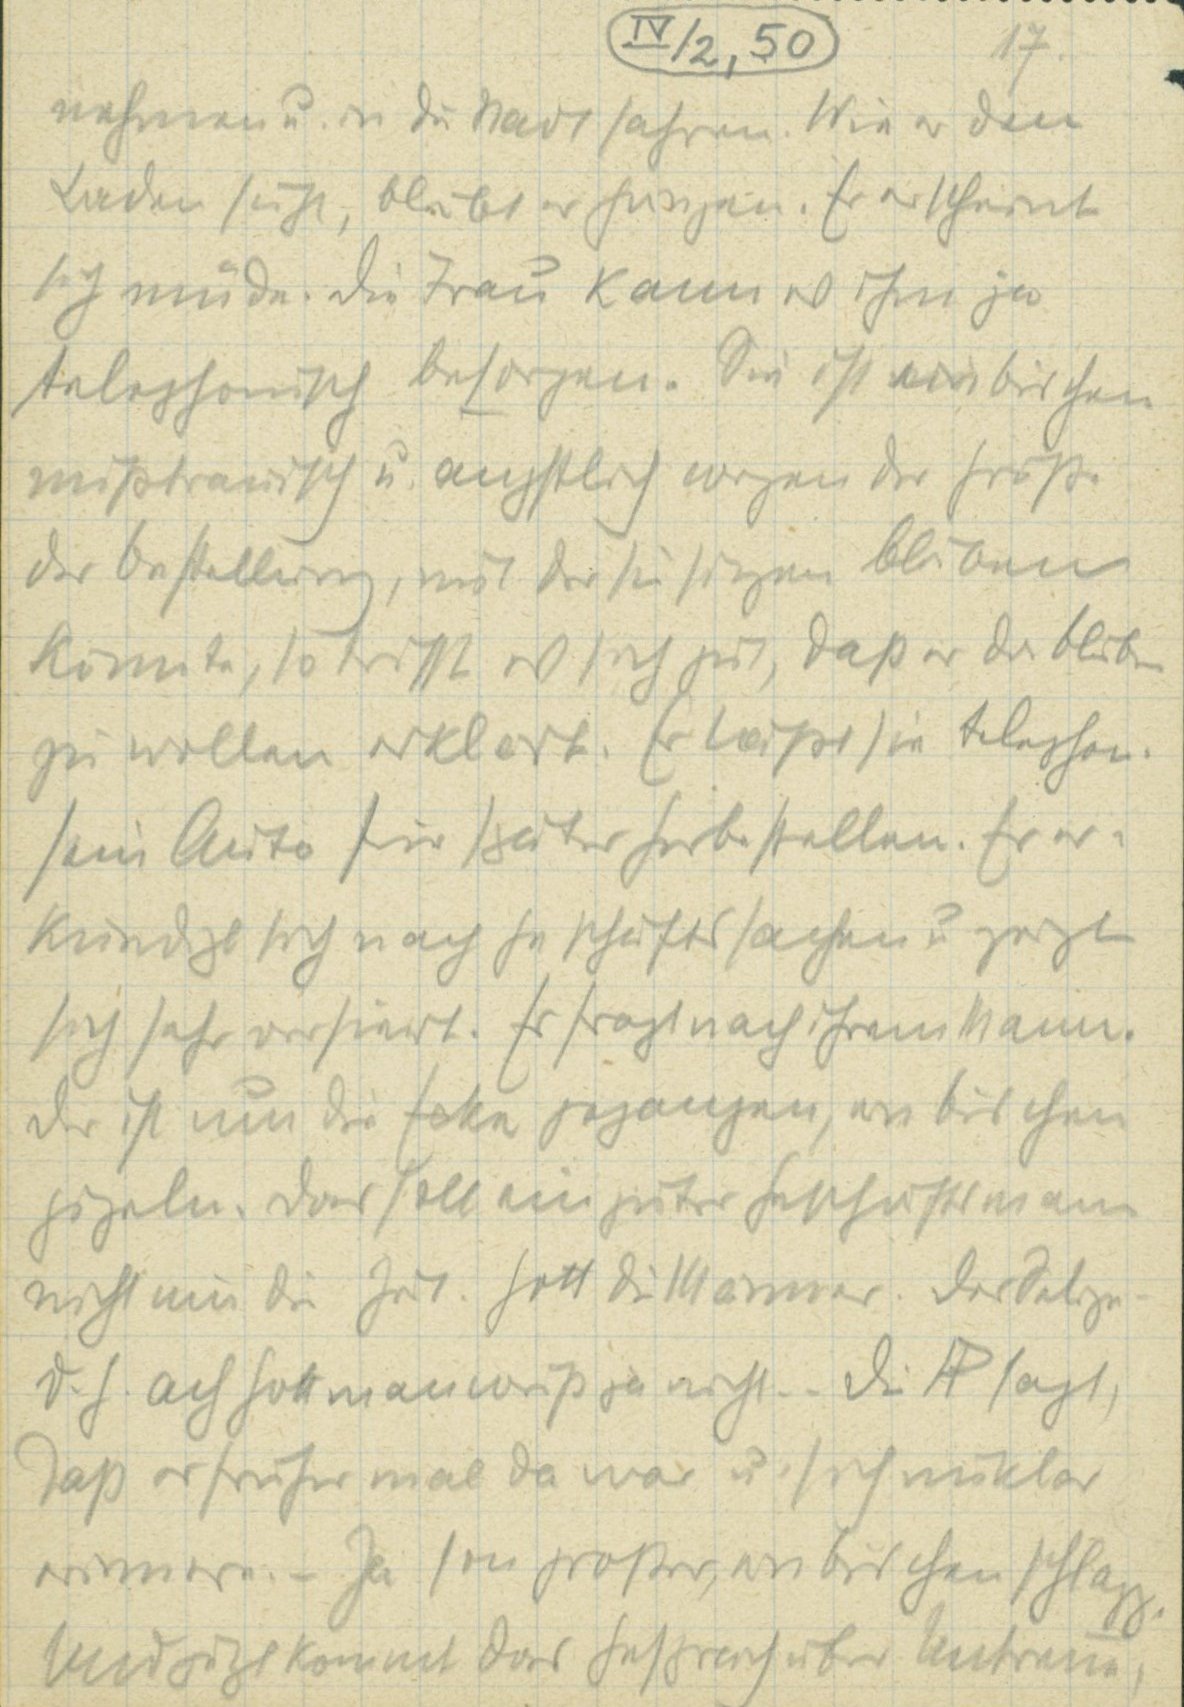 IV/2, 50
17.
nehmen u. in die Stadt fahren. Wie er den
Laden sieht, bleibt er hängen. Er erscheint
sich müde. Die Frau kann es ihm ja
telephonisch besorgen. Sie ist ein bischen
mißtrauisch u. ängstlich wegen der Größe
der Bestellung, mit der sie sitzen bleiben
könnte, so trifft es sich gut, daß er da bleiben
zu wollen erklärt. Er läßt sie telephon.
sein Auto für später herbestellen. Er er-
kundigt sich nach Geschäftssachen u zeigt
sich sehr versiert. Er fragt nach ihrem Mann.
Der ist um die Ecke gegangen, en bischen
. Das soll ein guter Geschäftsmann
nicht um die Zeit. Gott die Männer. Der Selige-
d. h. ach Gott man weiß ja nicht. - Die sagt,
daß er früher mal da war u. sich unklar
erinnere. - Ja son großer, en bischen schlapp.
Und jetzt kommt das Gespräch über Untreue,